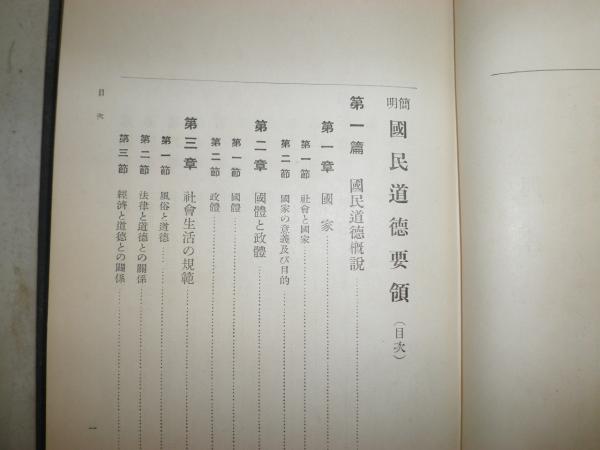 簡明 國民道德要領（目次）
第一篇 國民道德概說
第一章 國家
第一節 社會と國家
第二節 國家の意義及び目的
第二章 國體と政體
第一節 國體
第二節 政體
第三章 社會生活の規範
第一節 風俗と道德
第二節 法律と道德との關係
第三節 經濟と道德との關係
目次
一